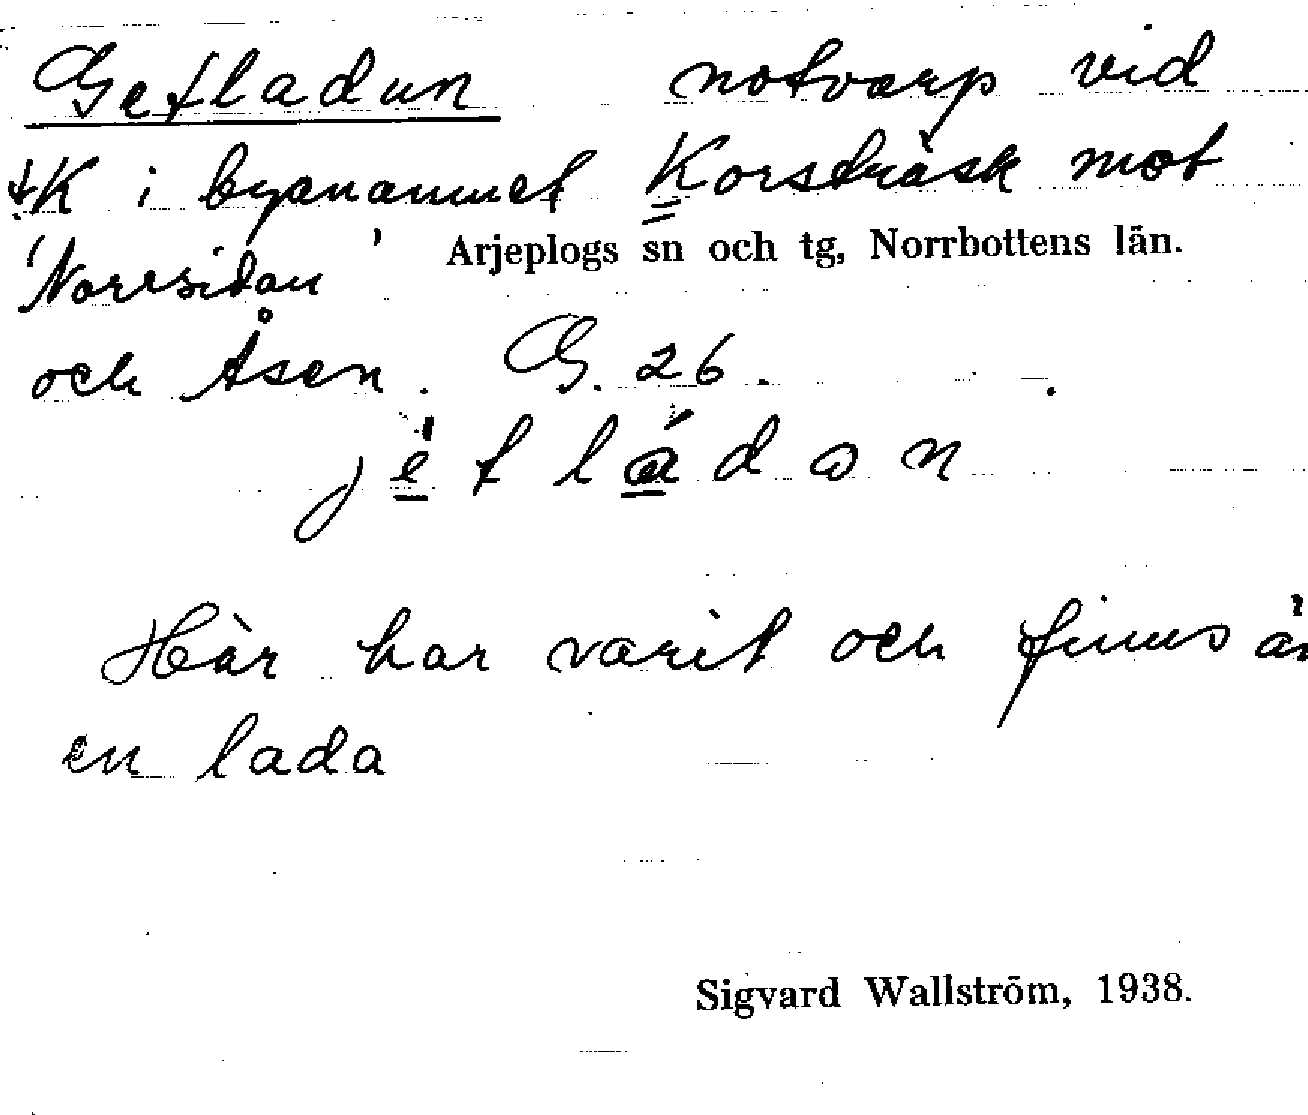 Getladun notvarp vid
+K i byanamnet Korsträsk mot
'Norrsidan' Arjeplogs sn och tg, Norrbottens län.
och Åsen. G. 26.
jétládan
Här har varit och finns än
en lada
Sigvard Wallström, 1938.